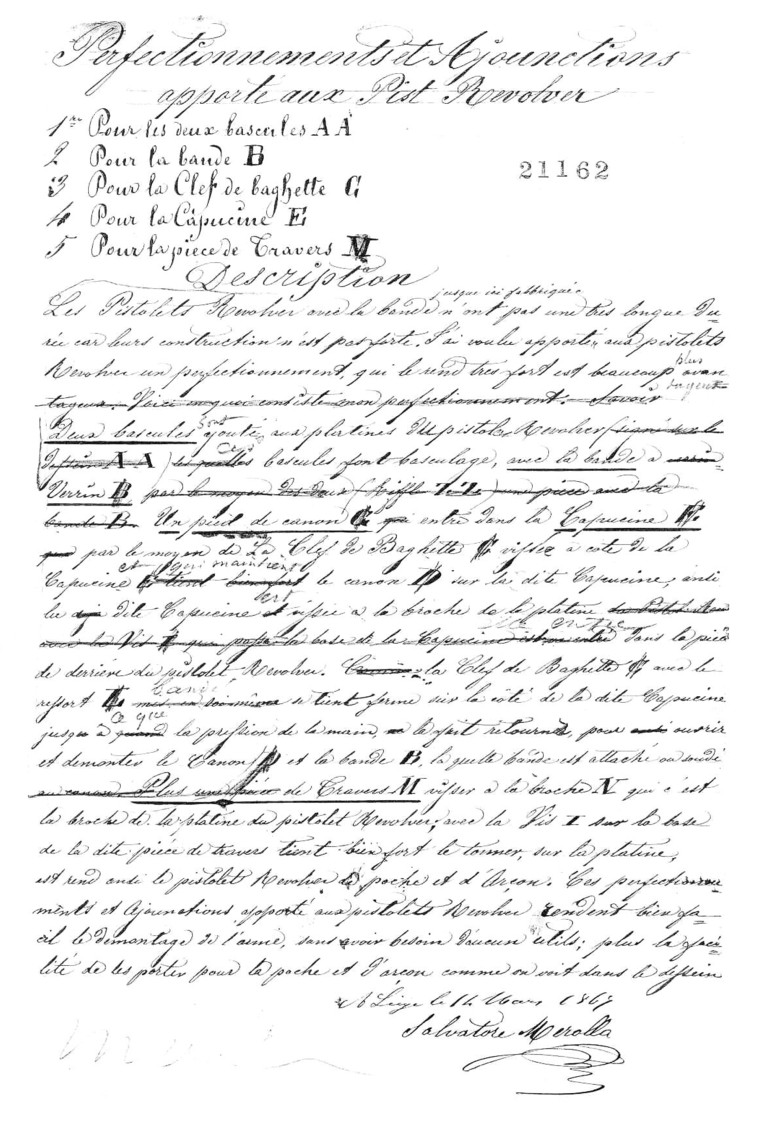 Perfectionnements et Ajounctions
apporté aux Pist Revolver
1re Pour les deux bascules A A
2 Pour la bande B
21162
3 Pour la Clef de baghette C
4 Pour la Capucine E
5 Pour la piece de Travers M
Description
jusque ici fabbriqué
Les Pistolets Revolver avec la bande n'ont pas une tres longue du-
rée car leurs construction n'est pas forte. J'ai voulu apporter aux pistolets
Revolver un perfectionnement, qui le rend tres fort est beaucoup plus avan
tageux. Voici en quoi consiste mon perfectionnement. Savoir
Deux bascules sont ajouté aux platines du pistolet Revolver (signé sur le
dessein A A) les quelles Ces bascules font basculage, avec la bande a
Verrin B par le moyen des deux une piece avec la
bande B. Un pied de canon qui entre dans la Capucine
par le moyen de La Clef de Baghette C visseé a coté de la
Capucine et qui maintient tient bien fort le canon D sur la dite Capucine, ausi
la dite Capucine est vissée a la broche de la platine
avec la Vis qui passa la base de la Capucine est entre dans la pieće
de derriere du pistolet Revolver. la Clef de Baghette C avec le
ressort se tient fermé sur la coté de la dite Capucine
jusqu a ce que quand la pression de la main, le fait retourner, pour ouvrir
et demonter le Canon D et la bande B, la quelle bande est attaché ou soudé
au canon Plus une piéce de Travers M visser a la broche N qui c'est
la broche de la platine du pistolet Revolver; avec la Vis I sur la base
de la dite pieće de travers tient bien fort le tonner, sur la platine,
est rend ausi le pistolet Revolver de poche et d'Arcon. Ces perfectionne
ments et Ajounctions apporté aux pistolets Revolver rendent bien fa-
cil le demontage de l'arme, sans avoir besoin d'aucun utils; plus la faci-
lité de les porter pour la poche et d'arcon comme on voit dans le dessein
A Liége le 14 Mars 1867
Salvatore Merolla